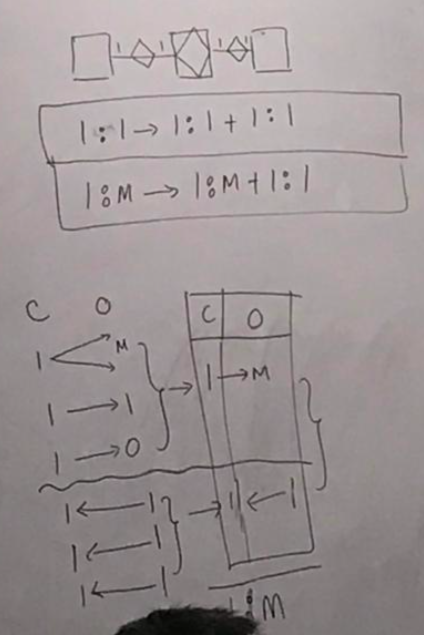 1 1 1 1
1:1 → 1:1 + 1:1
1:M → 1:M + 1:1
C O
1 → M
1 → 1
1 → O
1 ← 1
1 ← 1
1 ← 1
C O
1 → M
1 ← 1
1:M